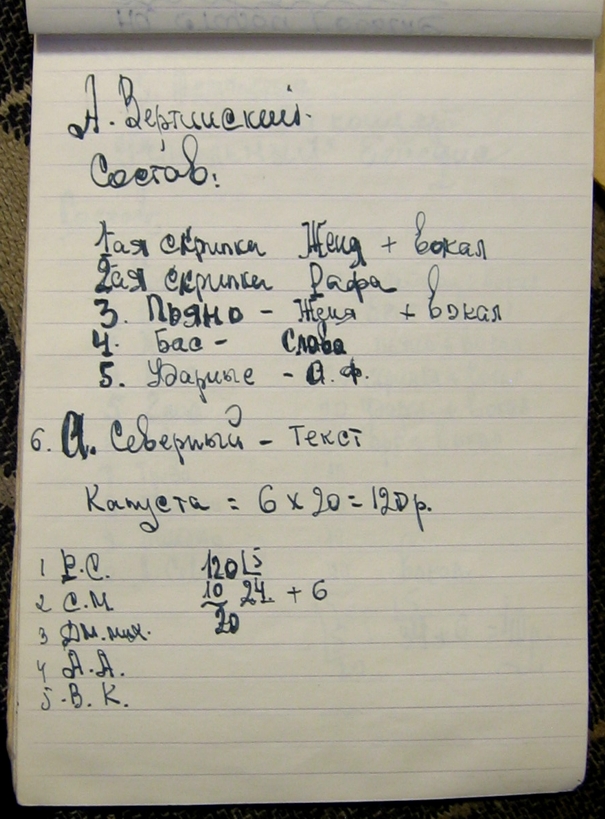 А. Вертинский.
Состав:
1ая скрипка Женя + вокал
2ая скрипка Рафа
3. Пьяно - Женя + вокал
4. Бас - Слава
5. Ударные - О. Ф.
6. А. Северный - текст
Капуста = 6 x 20 = 120 р.
1 Р. С. 120 5
2 С. М 10 24 + 6
3 Дм. мих. 20
4 А. А.
5. В. К.